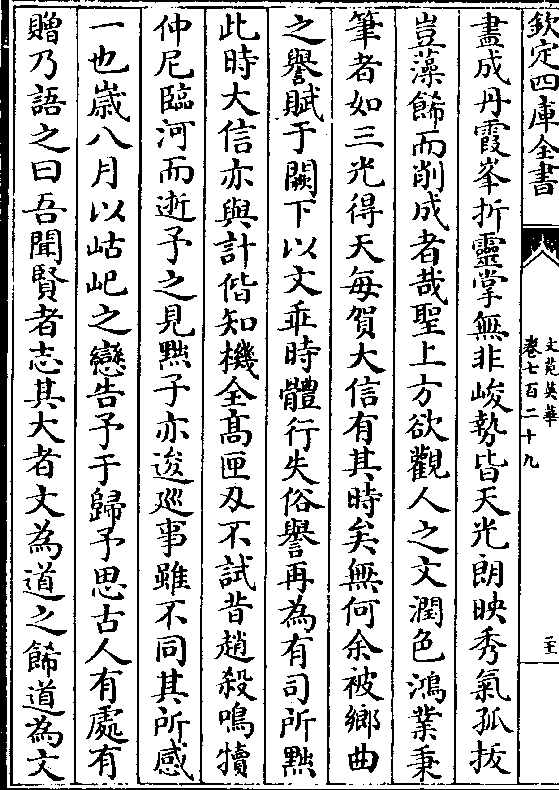 欽定四庫全書
文苑英華
卷七百二十九
至
畫成丹霞峯折靈掌無非峻勢皆天光朗映秀氣孤拔
豈藻飾而削成者哉聖上方欲觀人之文潤色鴻業秉
筆者如三光得天每賀大信有其時矣無何余被鄉曲
之譽賦于闕下以文乖時體行失俗譽再為有司所黜
此時大信亦與計偕知機全髙匣刄不試昔趙殺鳴犢
仲尼臨河而逝予之見黜子亦逡巡事雖不同其所感
一也嵗八月以岵屺之戀告予于歸予思古人有處有
贈乃語之曰吾聞賢者志其大者文為道之飾道為文